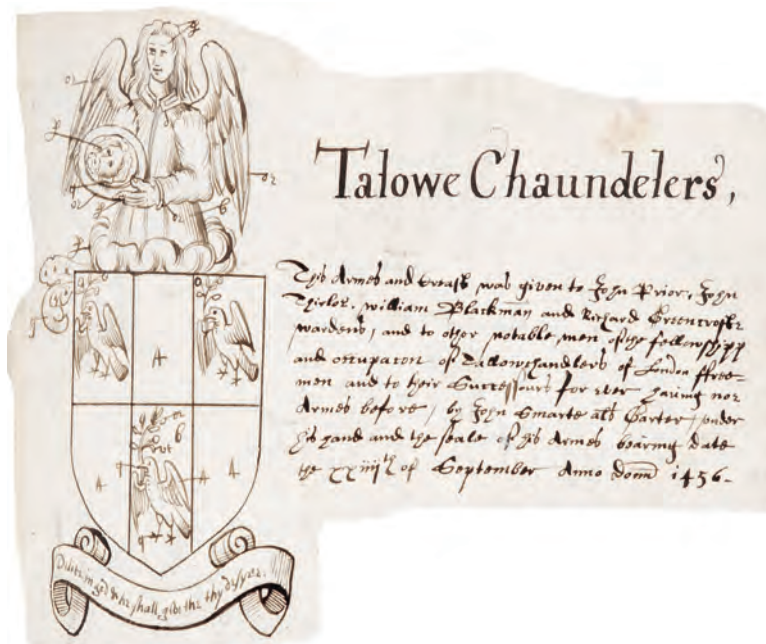 Talowe Chaundelers,
This Armes and Creast was given to John Prior, John
Thirlos, William Blackman and Richard Greencrofte
wardens, and to other notable men of the fellowshipp
and occupacon of Tallowchandlers of London ffree=
men and to their Successours for ever having nor
Armes before, by John Smarte als Garter, under
his hand and the seale of his Armes bearing date
the xxiiijth of September Anno Domi 1456.
A
A
A A
b
or
or
or
or
b
in god & he shall give the thy